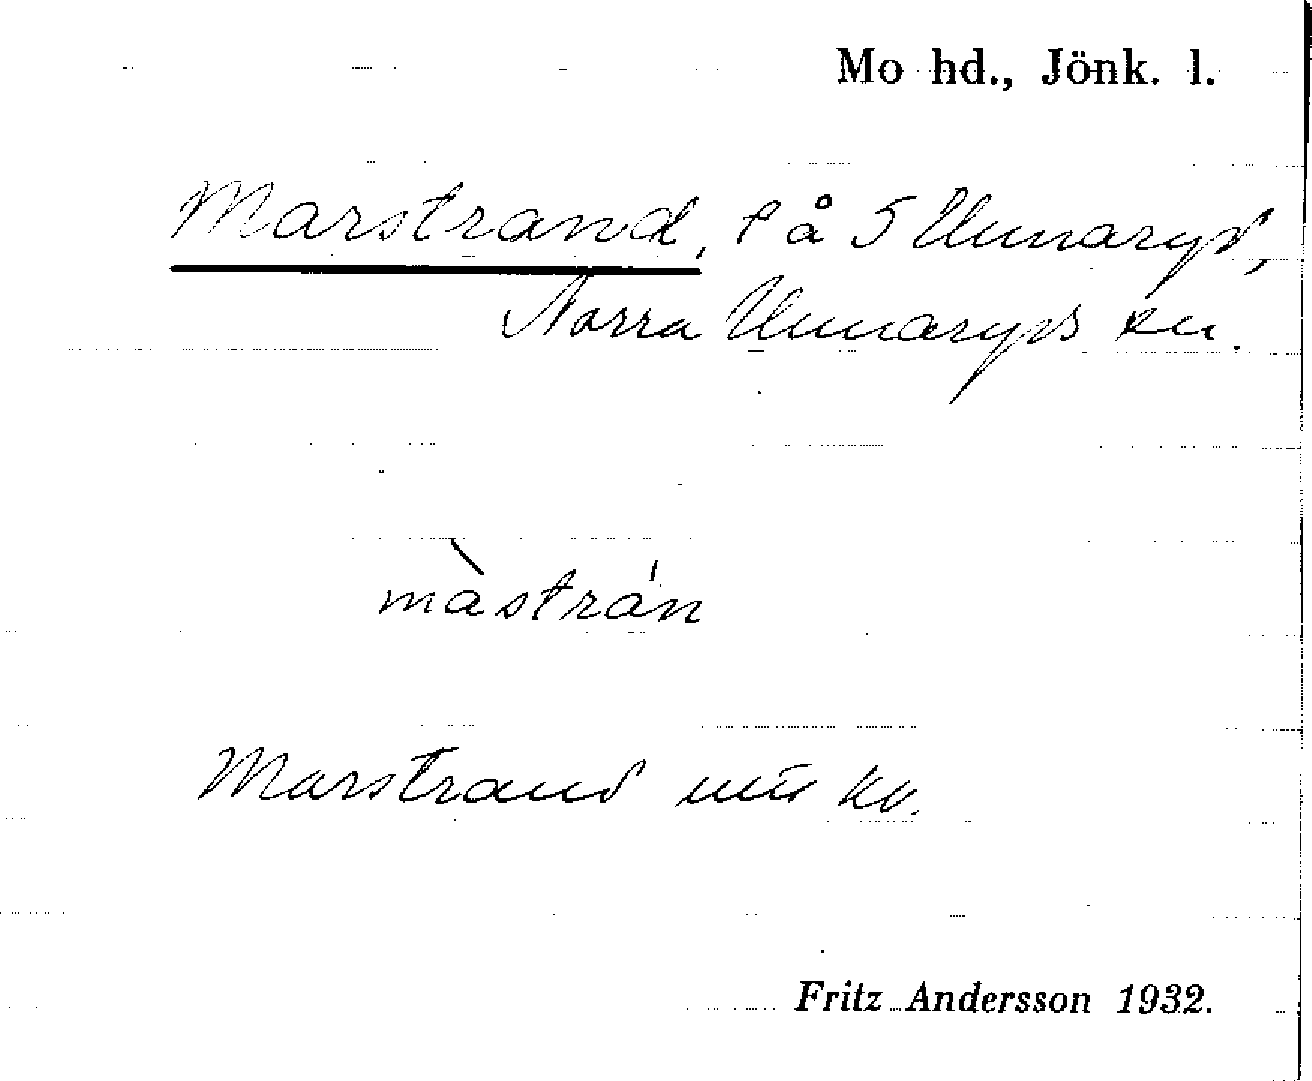 Mo hd., Jönk. l.
Marstrand, l å 5 Unnaryd,
Norra Unnaryds sn.
màstrán
Marstrand kv.
Fritz Andersson 1932.